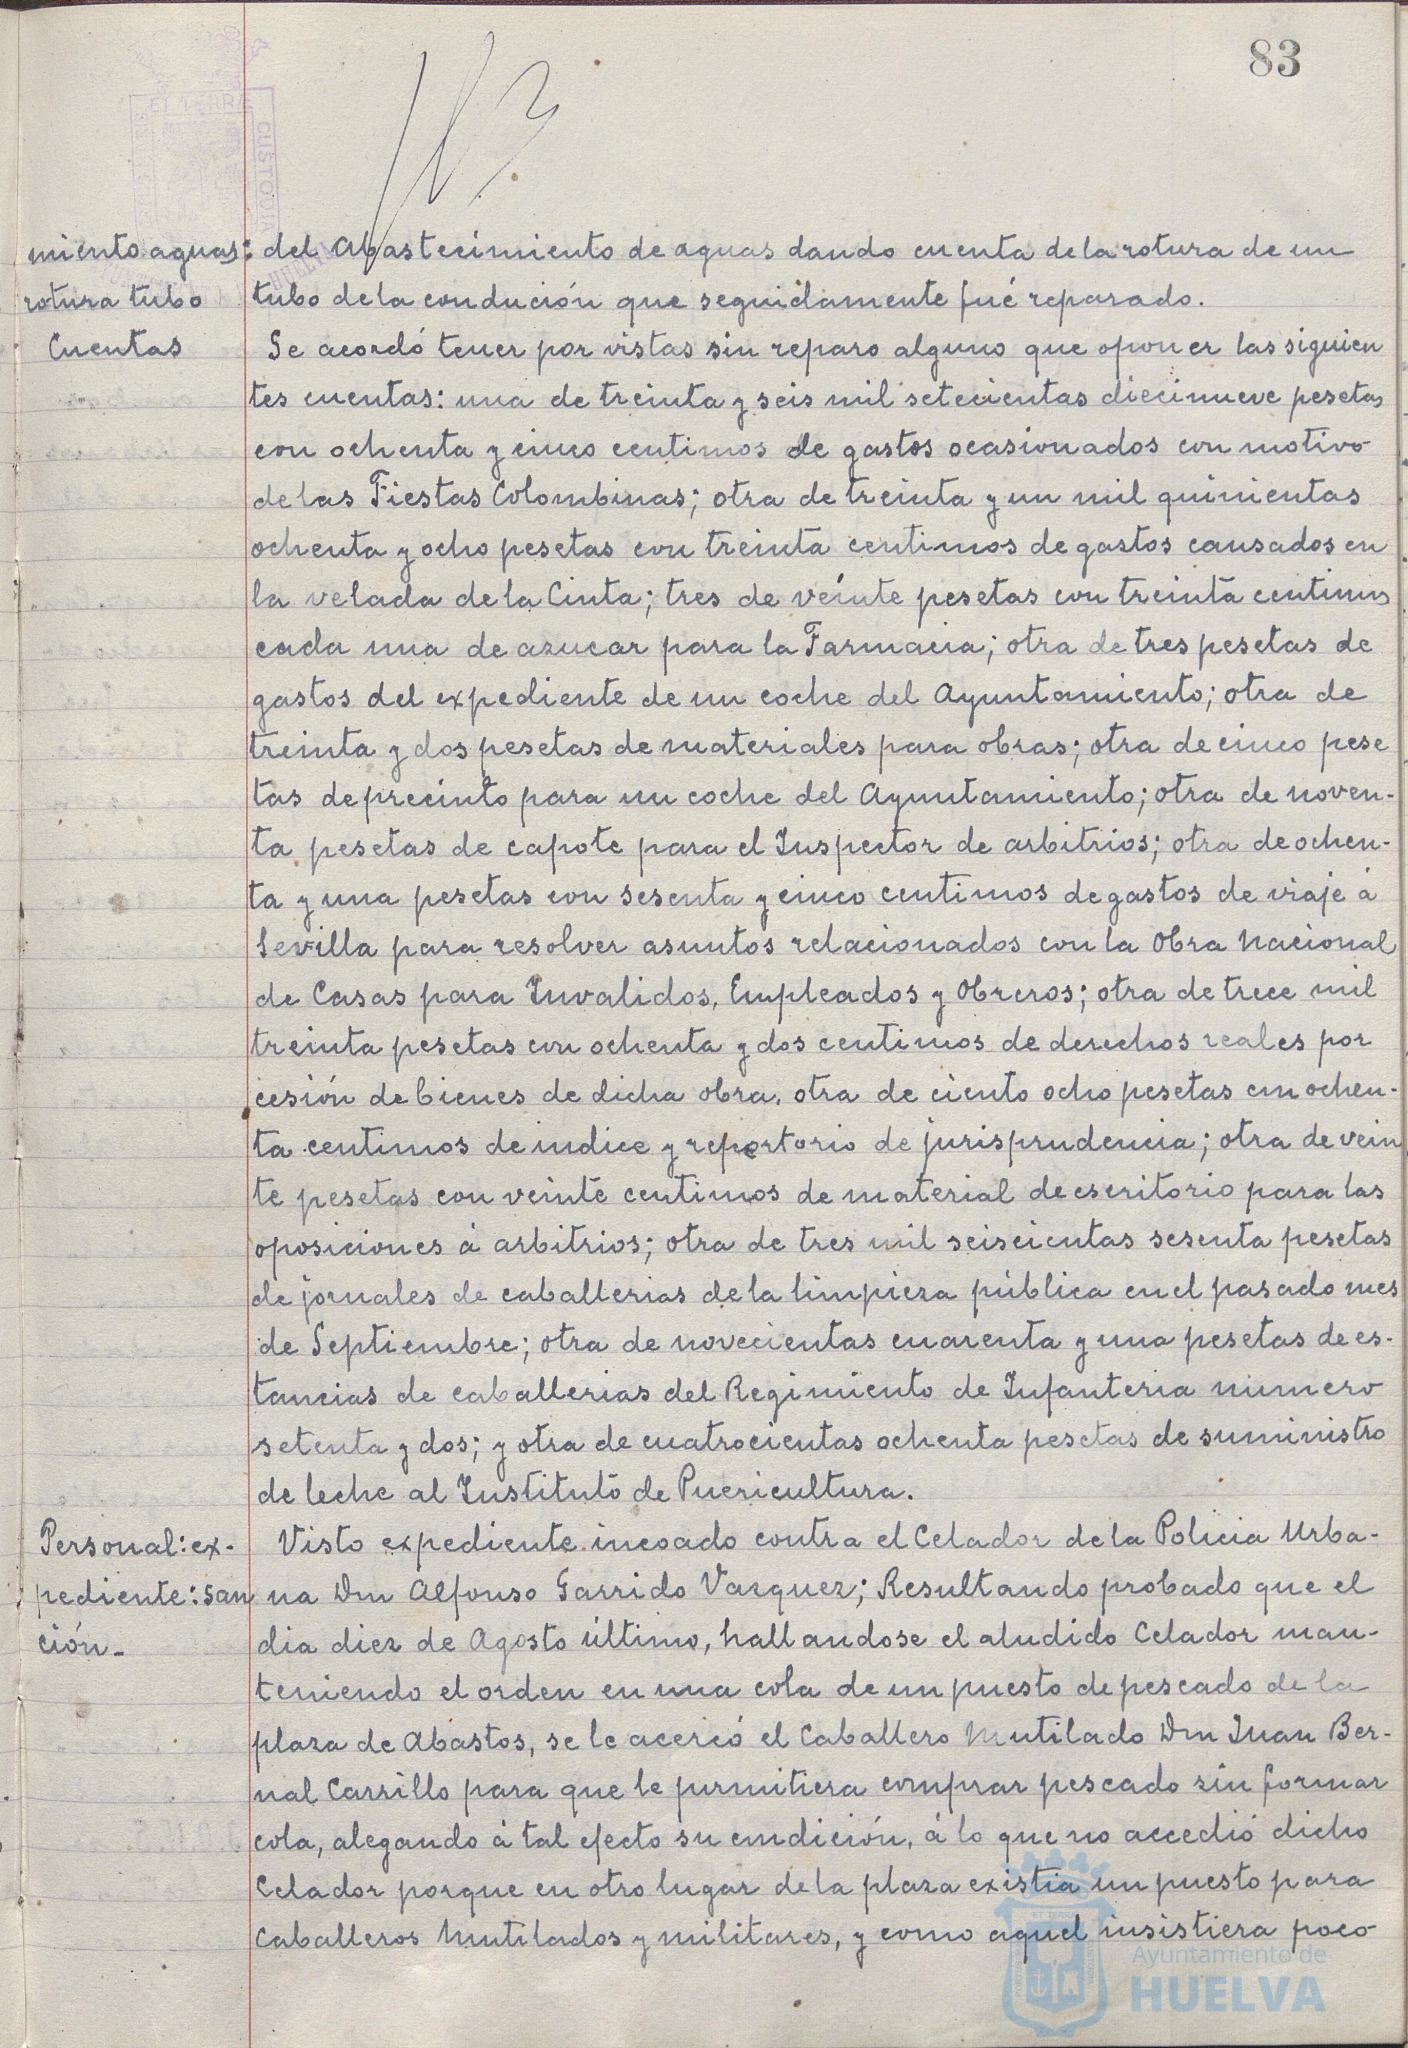 83
miento aguas: del Abastecimiento de aguas dando cuenta de la rotura de un
rotura tubo tubo de la condución que seguidamente fué reparado.
Cuentas Se acordó tener por vistas sin reparo alguno que oponer las siguien
tes cuentas: una de treinta y seis mil setecientas diecinueve pesetas
con ochenta y cinco centimos de gastos ocasionados con motivo
de las Fiestas Colombinas; otra de treinta y un mil quinientas
ochenta y ocho pesetas con treinta centimos de gastos causados en
la velada de la Cinta; tres de veinte pesetas con treinta centimos
cada una de azucar para la Farmacia; otra de tres pesetas de
gastos del expediente de un coche del Ayuntamiento; otra de
treinta y dos pesetas de materiales para obras; otra de cinco pese
tas de precinto para un coche del Ayuntamiento; otra de noven-
ta pesetas de capote para el Inspector de arbitrios; otra de ochen-
ta y una pesetas con sesenta y cinco centimos de gastos de viaje á
Sevilla para resolver asuntos relacionados con la Obra Nacional
de Casas para Invalidos, Empleados y Obreros; otra de trece mil
treinta pesetas con ochenta y dos centimos de derechos reales por
cesión de bienes de dicha obra, otra de ciento ocho pesetas con ochen-
ta centimos de indice y repertorio de jurisprudencia; otra de vein
te pesetas con veinte centimos de material de escritorio para las
oposiciones á arbitrios; otra de tres mil seiscientas sesenta pesetas
de jornales de caballerias de la limpieza pública en el pasado mes
de Septiembre; otra de novecientas cuarenta y una pesetas de es-
tancias de caballerias del Regimiento de Infanteria numero
setenta y dos; y otra de cuatrocientas ochenta pesetas de suministro
de leche al Instituto de Puericultura.
Personal: ex- Visto expediente incoado contra el Celador de la Policia Urba-
pediente: san na Don Alfonso Garrido Vazquez; Resultando probado que el
ción- dia diez de Agosto último, hallandose el aludido Celador man-
teniendo el orden en una cola de un puesto de pescado de la
plaza de Abastos, se le acercó el Caballero Mutilado Don Juan Ber-
nal Carrillo para que le permitiera comprar pescado sin formar
cola, alegando á tal efecto su condición, á lo que no accedió dicho
Celador porque en otro lugar de la plaza existia un puesto para
Caballeros Mutilados y militares, y como aquel insistiera poco
Ayuntamiento de
HUELVA